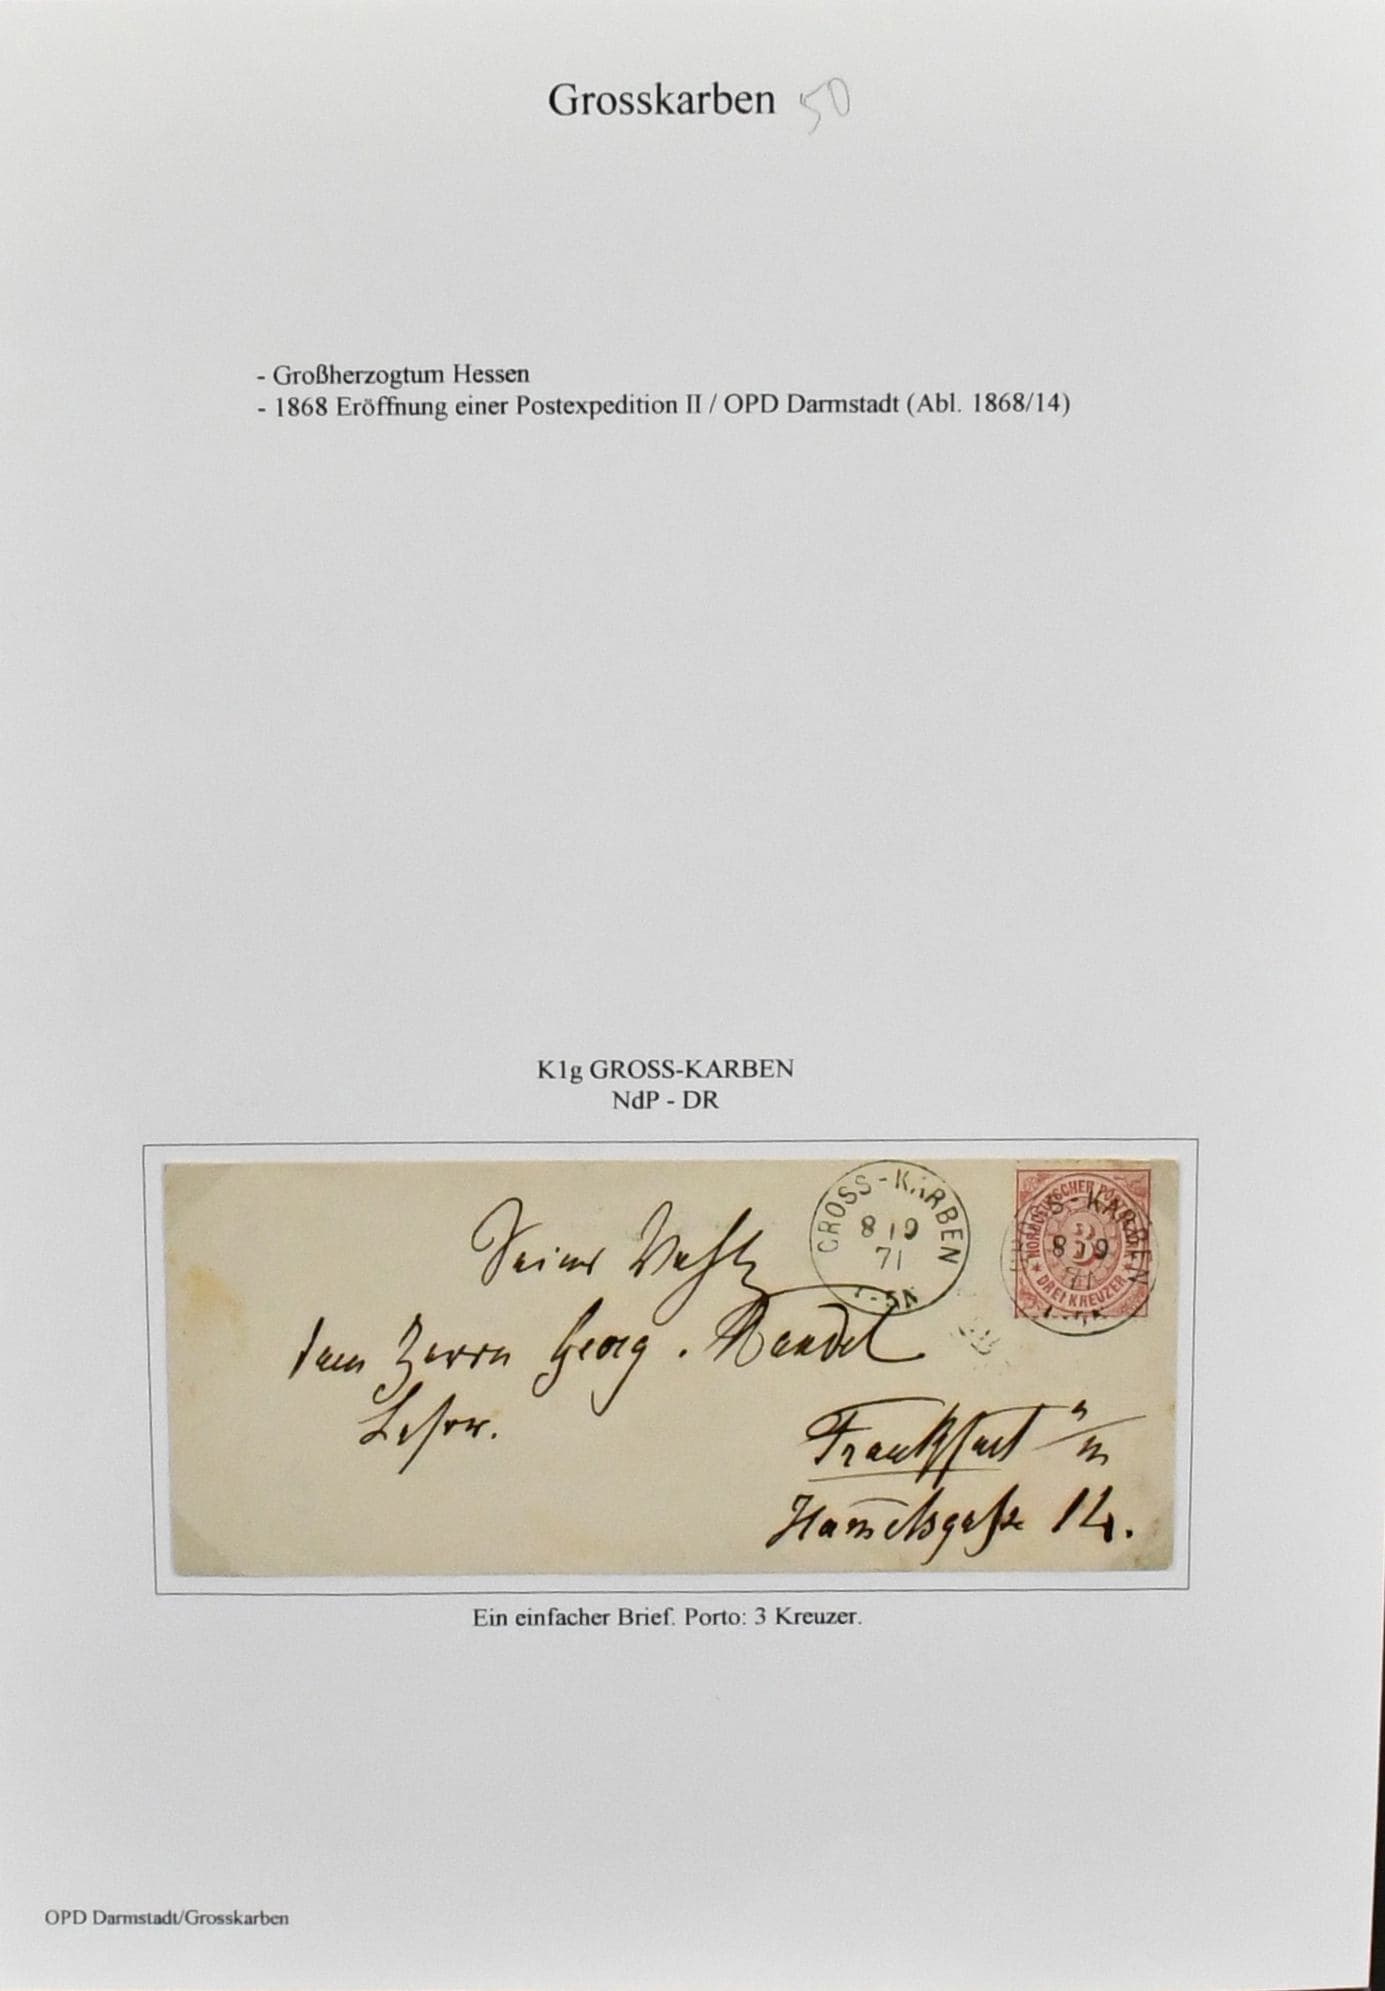 Grosskarben 50
- Großherzogtum Hessen
- 1868 Eröffnung einer Postexpedition II / OPD Darmstadt (Abl. 1868/14)
K1g GROSS-KARBEN
NdP - DR
GROSS-KARBEN
8 10
71
NORDDEUTSCHER POSTBEZIRK
3
DREI KREUZER
S-KARBEN
Seiner
dem Herrn Georg. Mandel
Frankfurt a/m
14.
Ein einfacher Brief. Porto: 3 Kreuzer.
OPD Darmstadt/Grosskarben